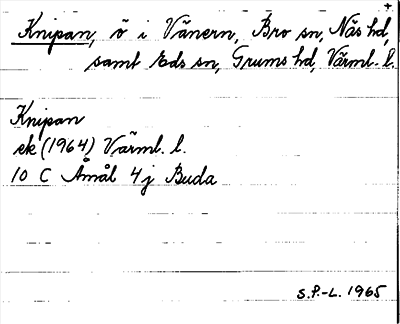 Knipan, ö i Vänern, Bro sn, Näs hd, +
samt Eds sn, Grums hd, Värml. l.
Knipan
ek (1964) Värml. l.
10 C Åmål 4j Buda
S.P.-L. 1965